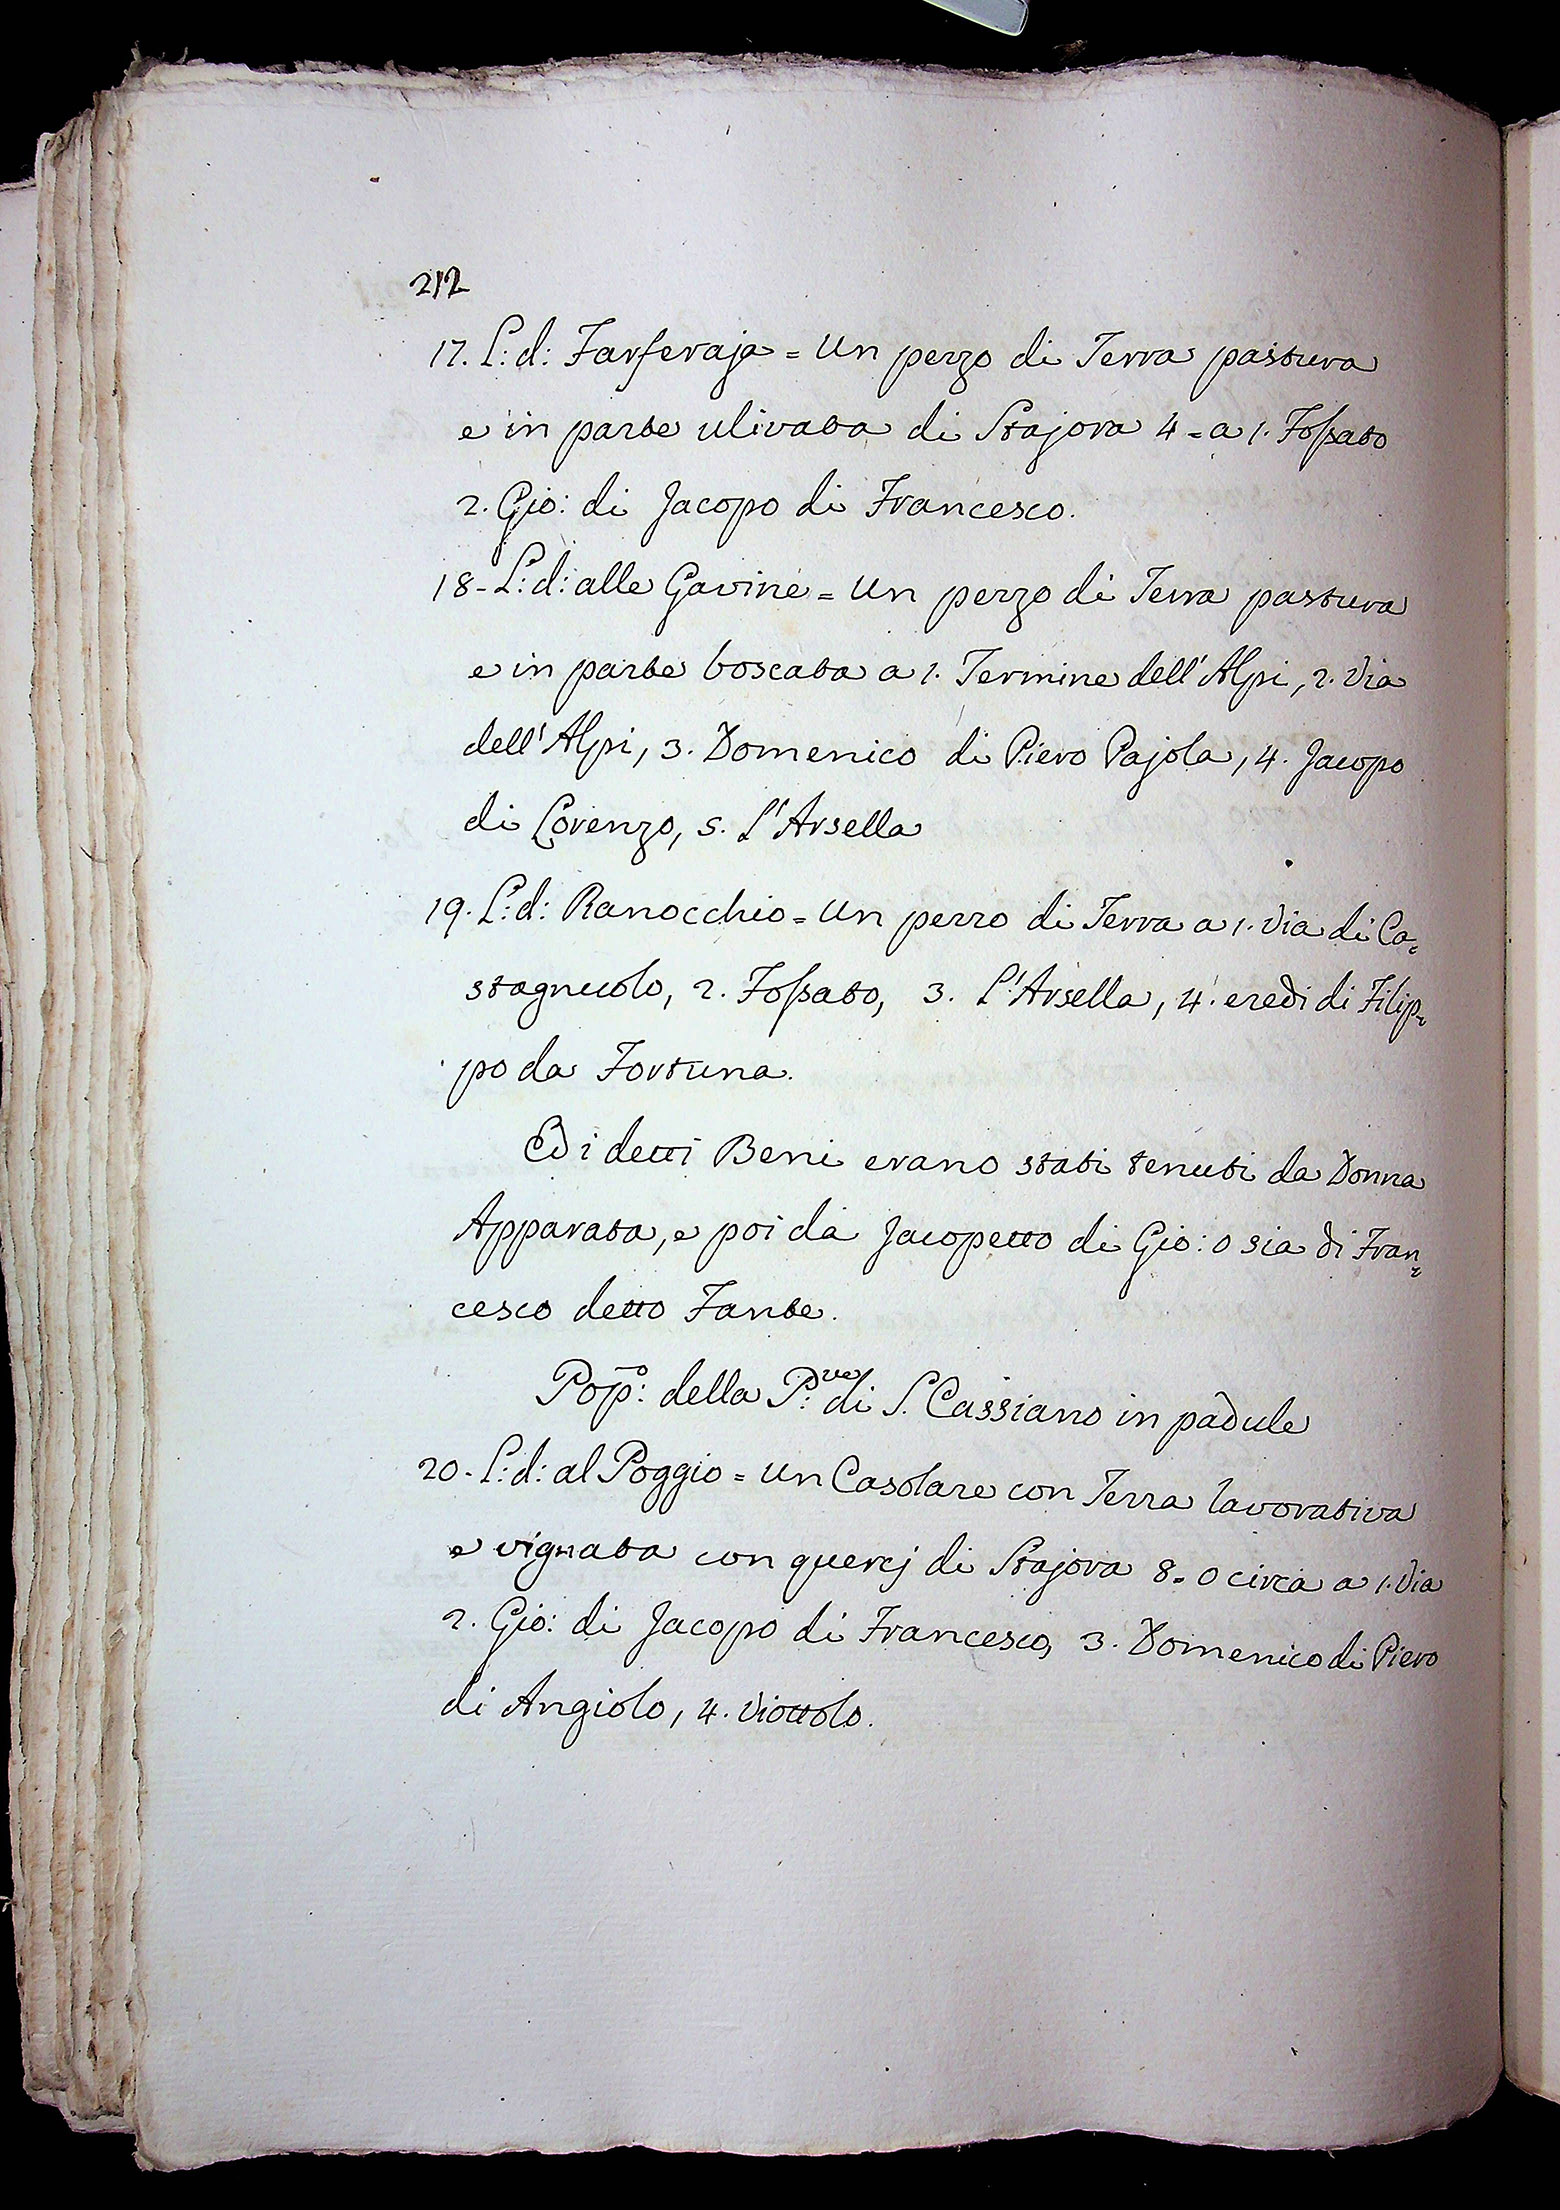 212
17. L: d: Farferaja = Un pezzo di Terra pastura
e in parte ulivata di Stajora 4 = a 1. Fossato
2. Gio: di Jacopo di Francesco.
18 - L: d: alle Gavine = Un pezzo di Terra pastura
e in parte boscata a 1. Termine dell' Alpi, 2. Via
dell' Alpi, 3. Domenico di Piero Pajola, 4. Jacopo
di Lorenzo, 5. L'Arsella
19. L: d: Ranocchio = Un pezzo di Terra a 1. Via di Ca=
stagnuolo, 2. Fossato, 3. L'Arsella, 4. eredi di Filip=
po da Fortuna.
Ed i detti Beni erano stati tenuti da Donna
Apparata, e poi da Jacopetto di Gio: o sia di Fran=
cesco detto Fante.
Pop:o della P:ve di S. Cassiano in padule
20 - L: d: al Poggio = Un Casolare con Terra lavorativa
e vignata con quercj di Stajora 8 = o circa a 1. Via
2. Gio: di Jacopo di Francesco, 3. Domenico di Piero
di Angiolo, 4. Viottolo.